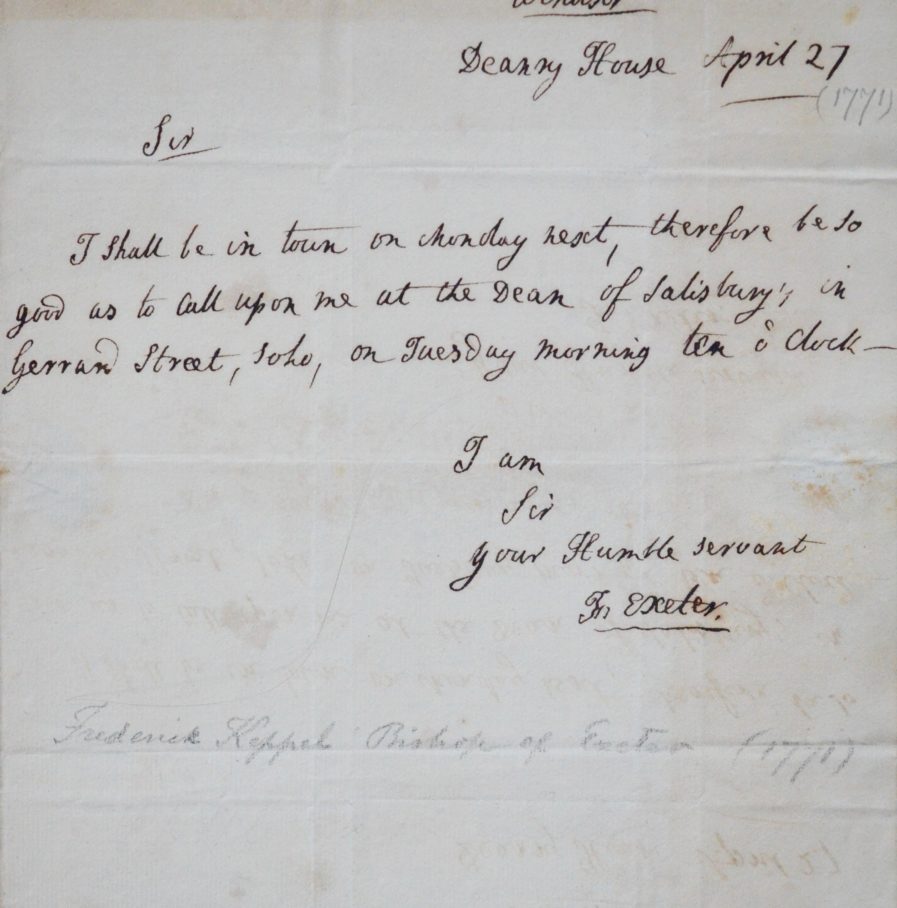 Windsor
Deanry House April 27
(1771)
Sir
I shall be in town on Monday next, therefore be so
good as to call upon me at the Dean of Salisbury's, in
Gerrard Street, Soho, on Tuesday morning ten o Clock—
I am
Sir
your Humble servant
Fr, Exeter.
Frederick Keppel Bishop of Exeter (1771)